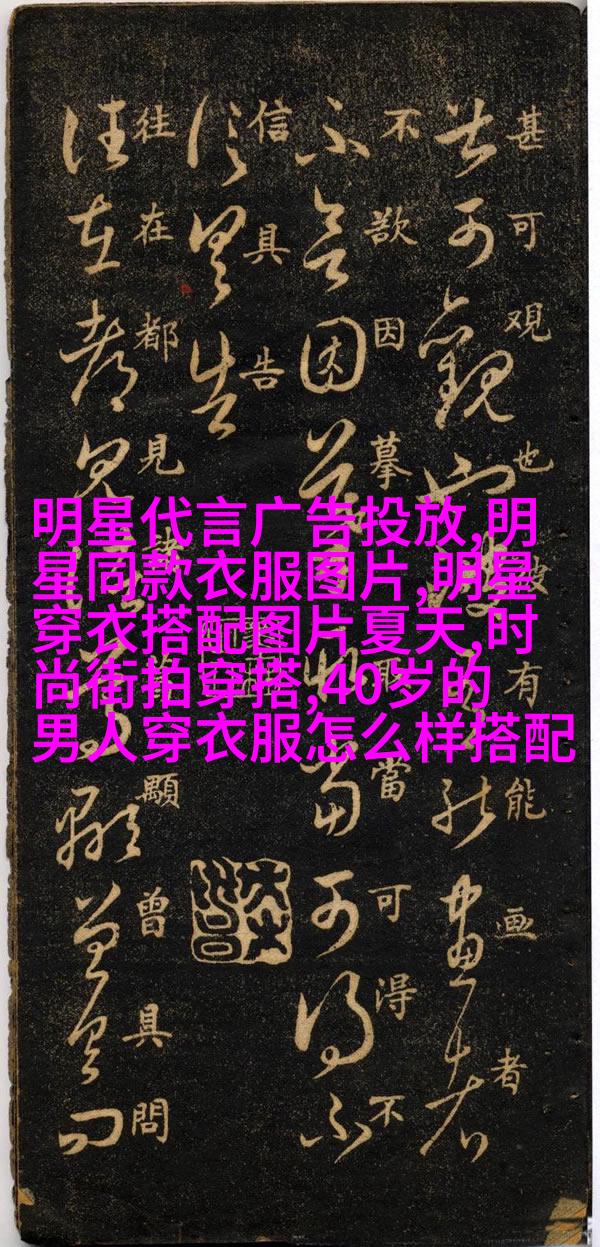 明星代言广告投放,明
星同款衣服图片,明星
穿衣搭配图片夏天,时
尚街拍穿搭,40岁的
男人穿衣服怎么样搭配
甚可观也彼有能画者
不欲因摹取當可得不
信具告
往在都見諸顒曾具問